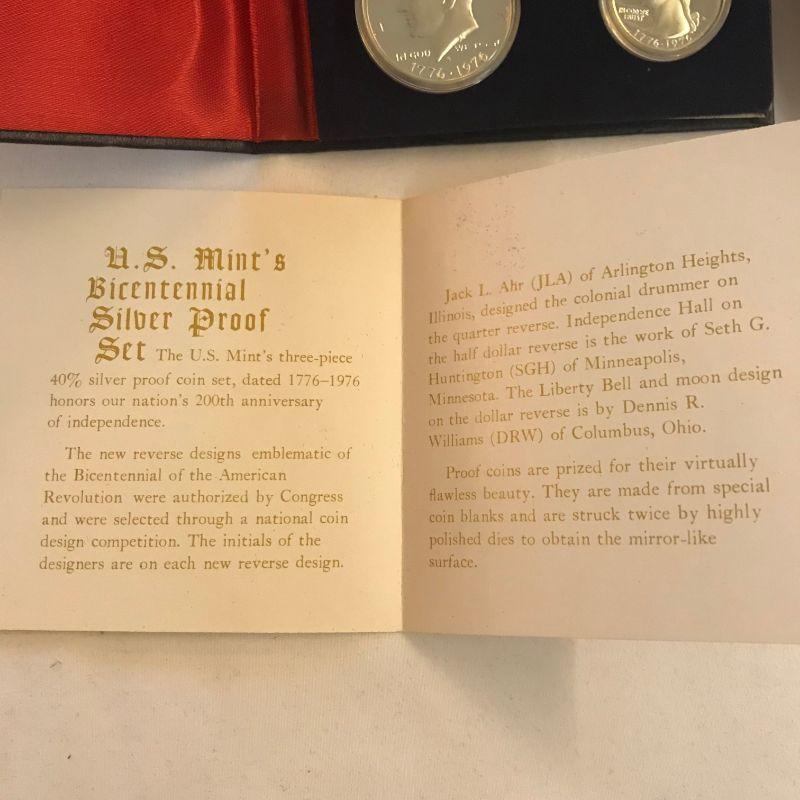 IN GOD WE
1776·1976
IN GOD WE
TRUST
1776-1976
U.S. Mint's
Bicentennial
Silver Proof
Set The U.S. Mint's three-piece
40% silver proof coin set, dated 1776–1976
honors our nation's 200th anniversary
of independence.
The new reverse designs emblematic of
the Bicentennial of the American
Revolution were authorized by Congress
and were selected through a national coin
design competition. The initials of the
designers are on each new reverse design.
Jack L. Ahr (JLA) of Arlington Heights,
Illinois, designed the colonial drummer on
the quarter reverse. Independence Hall on
the half dollar reverse is the work of Seth G.
Huntington (SGH) of Minneapolis,
Minnesota. The Liberty Bell and moon design
on the dollar reverse is by Dennis R.
Williams (DRW) of Columbus, Ohio.
Proof coins are prized for their virtually
flawless beauty. They are made from special
coin blanks and are struck twice by highly
polished dies to obtain the mirror-like
surface.